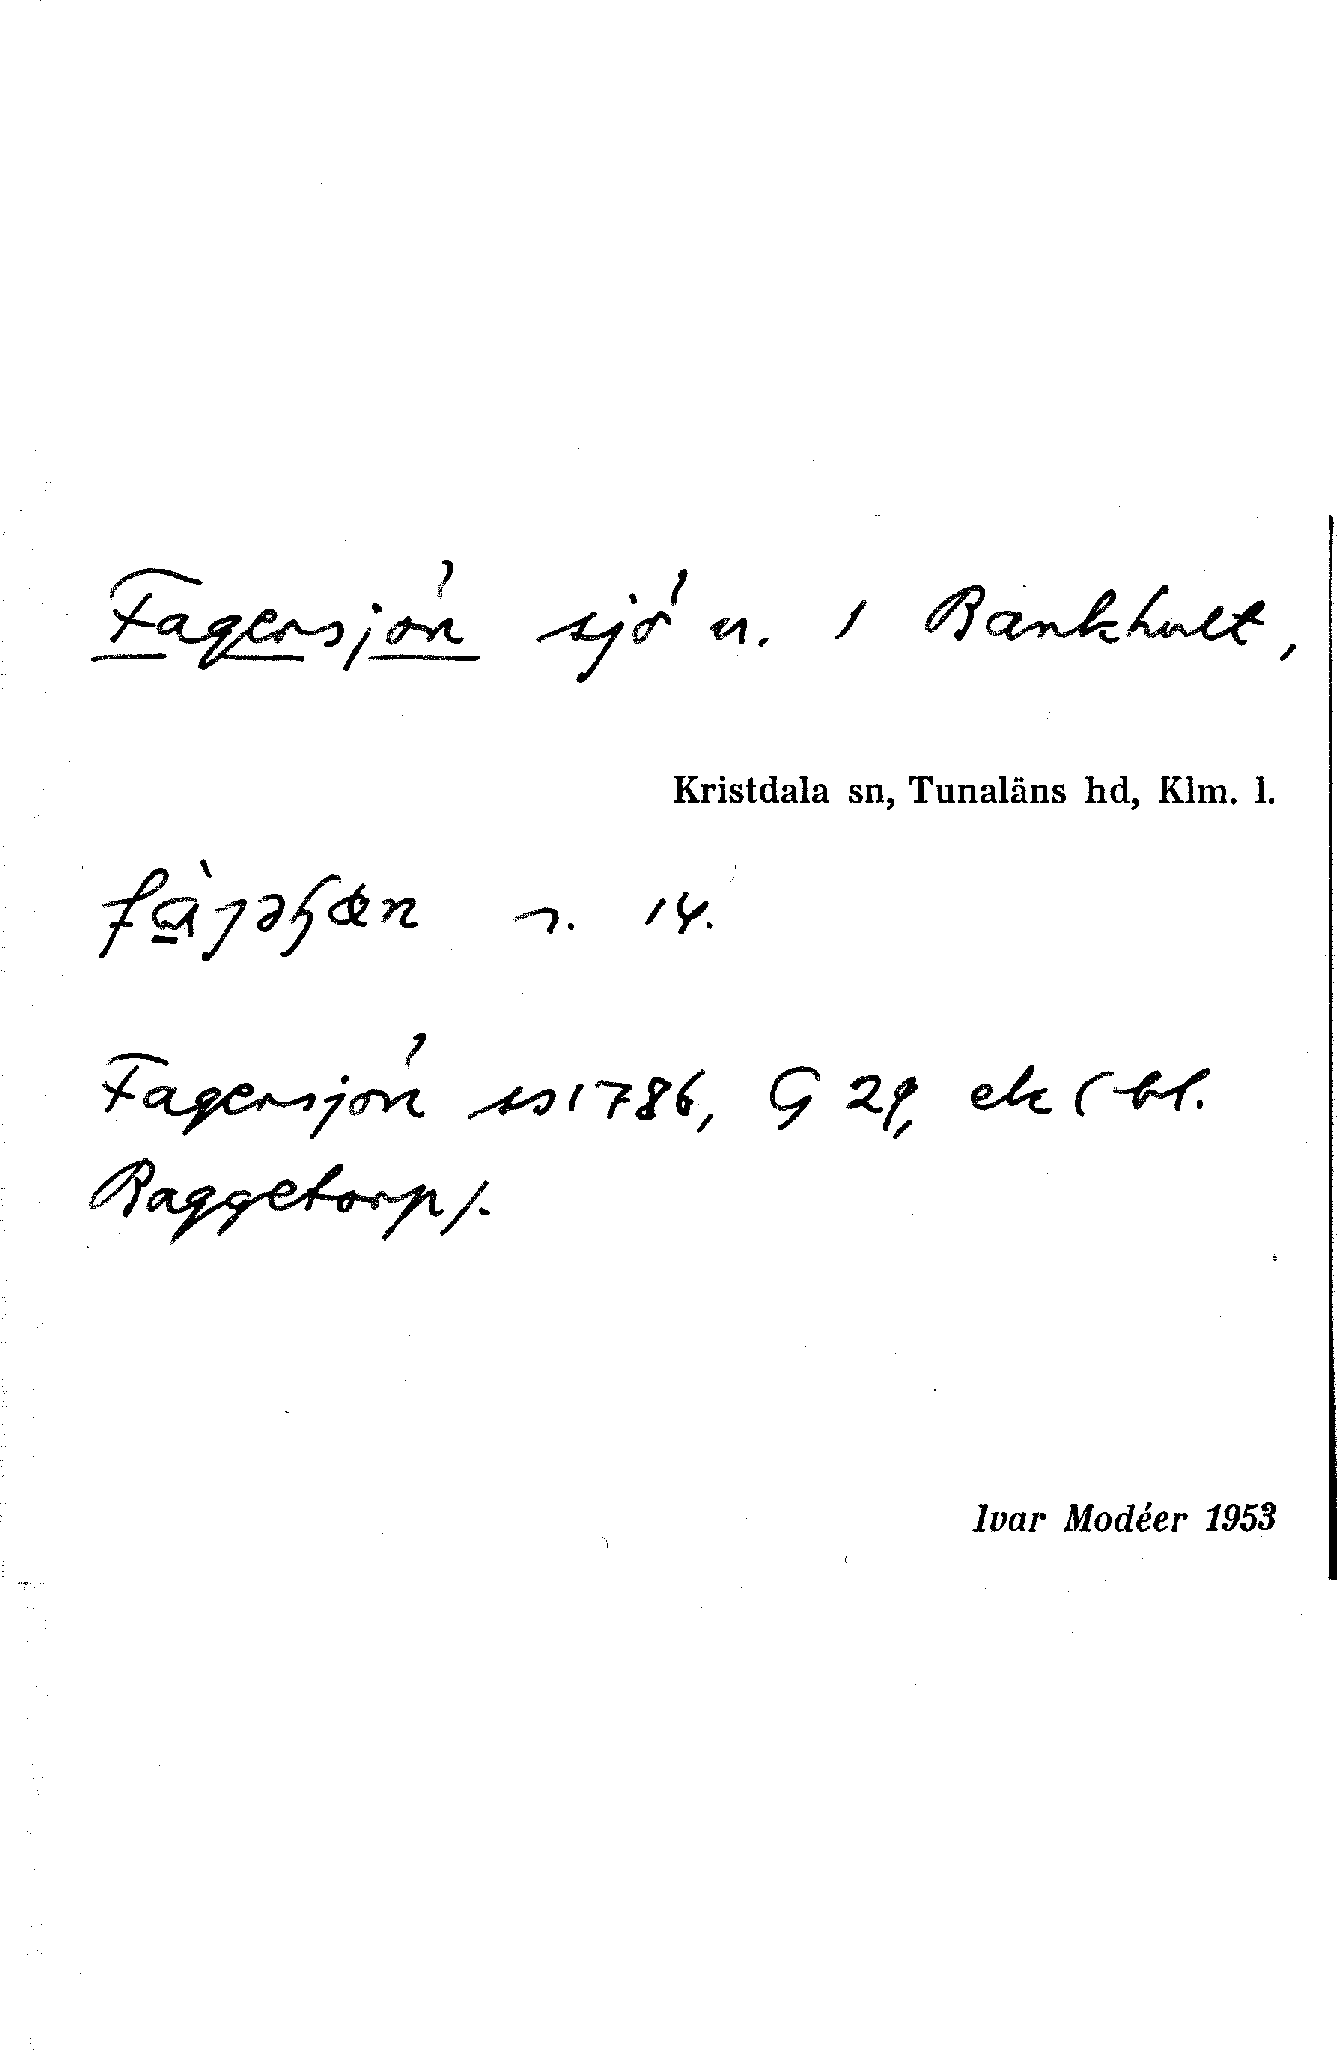 Fagersjön sjö n. 1 Bankhult,
Kristdala sn, Tunaläns hd, Klm. l.
s. 14.
Fagersjön ss 1786, G 29, ek (bl.
Raggetorp).
Ivar Modéer 1953